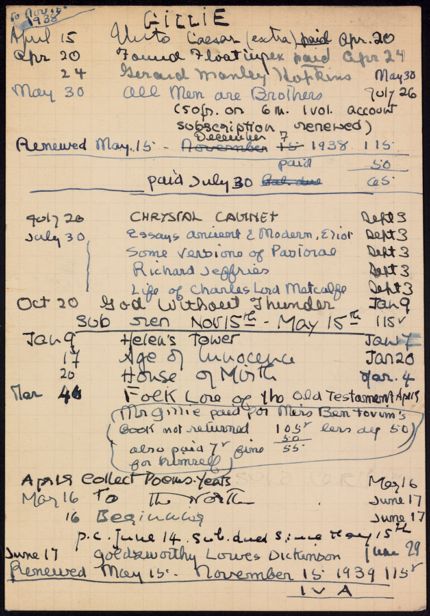 to Nov 15
1938
GILLIE
April 15 Unto Caesar (extra) paid apr. 20
Apr 20 Found Floating ex paid apr 24
24 Gerard Manley Hopkins May 30
May 30 All Men are Brothers July 26
(50fr. on 6 m. 1 vol. account
subscription renewed)
December 7
Renewed May. 15 - November 15 1938 115
paid 50
paid July 30 Bal. due 65
July 26 CHRYSTAL CABINET Sept 3
July 30 Essays ancient & Modern, Eliot Sept 3
Some versions of Pastoral Sept 3
Richard Jeffries Sept 3
Life of Charles Lord Metcalfe Sept 3
Oct 20 God Without Thunder Jan 9
Sub ren Nov 15th - May 15th 115
Jan 9 Helen's Tower Jan 17
17 Age of Innocence Jan 20
20 House of Mirth Mar. 4
Mar 4 Folk Lore of the Old Testament April 15
(Mr Gillie paid for Miss Bentovim's
book not returned 105fr less dep 50)
50
also paid 7fr fine 55
for himself)
April 15 Collect Poems - Yeats May 16
May 16 To the North June 17
16 Beginning June 17
p.c. June 14. Sub. due since May 15th
June 17 Goldsworthy Lowes Dickinson June 29
Renewed May 15 - November 15 1939 115
1 V A